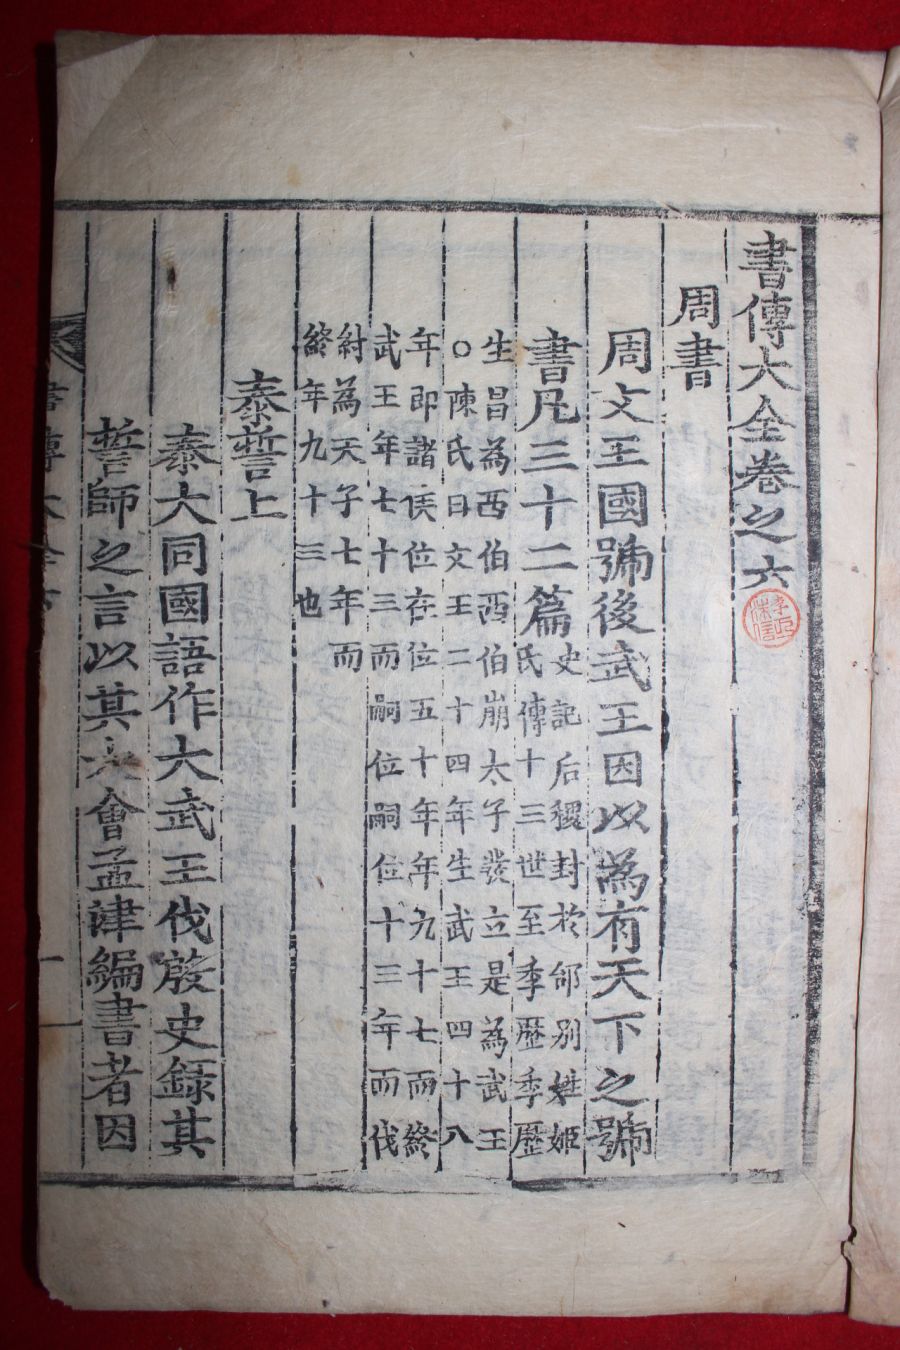 書傳大全卷之六
周書
周文王國號後武王因以為有天下之號
書凡三十二篇史記后稷封於邰別姓姬
氏傳十三世至季歷季歷
生昌為西伯西伯崩太子發立是為武王
○陳氏曰文王二十四年生武王四十八
年即諸侯位在位五十年年九十七而終
武王年七十三而嗣位嗣位十三年而伐
紂為天子七年而
終年九十三也
泰誓上
泰大同國語作大武王伐殷史錄其
誓師之言以其大會孟津編書者因
書傳大全
一